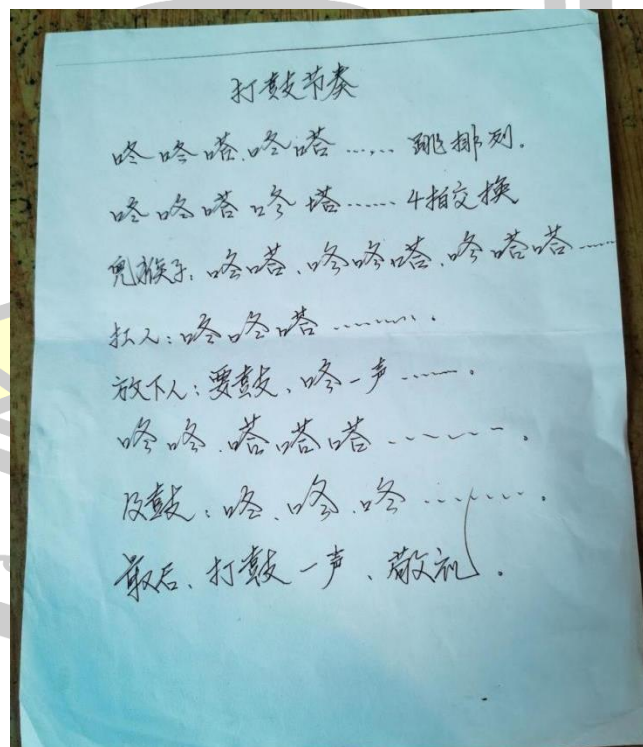 打鼓节奏
咚咚嗒.咚嗒……跳排列.
咚咚嗒咚塔……4拍交换
咚嗒、咚咚嗒、咚嗒嗒……
扛人:咚咚嗒…….
放下人:要鼓、咚一声…….
咚咚.嗒嗒嗒…….
鼓:咚、咚.咚…….
最后、打鼓一声、敬礼.